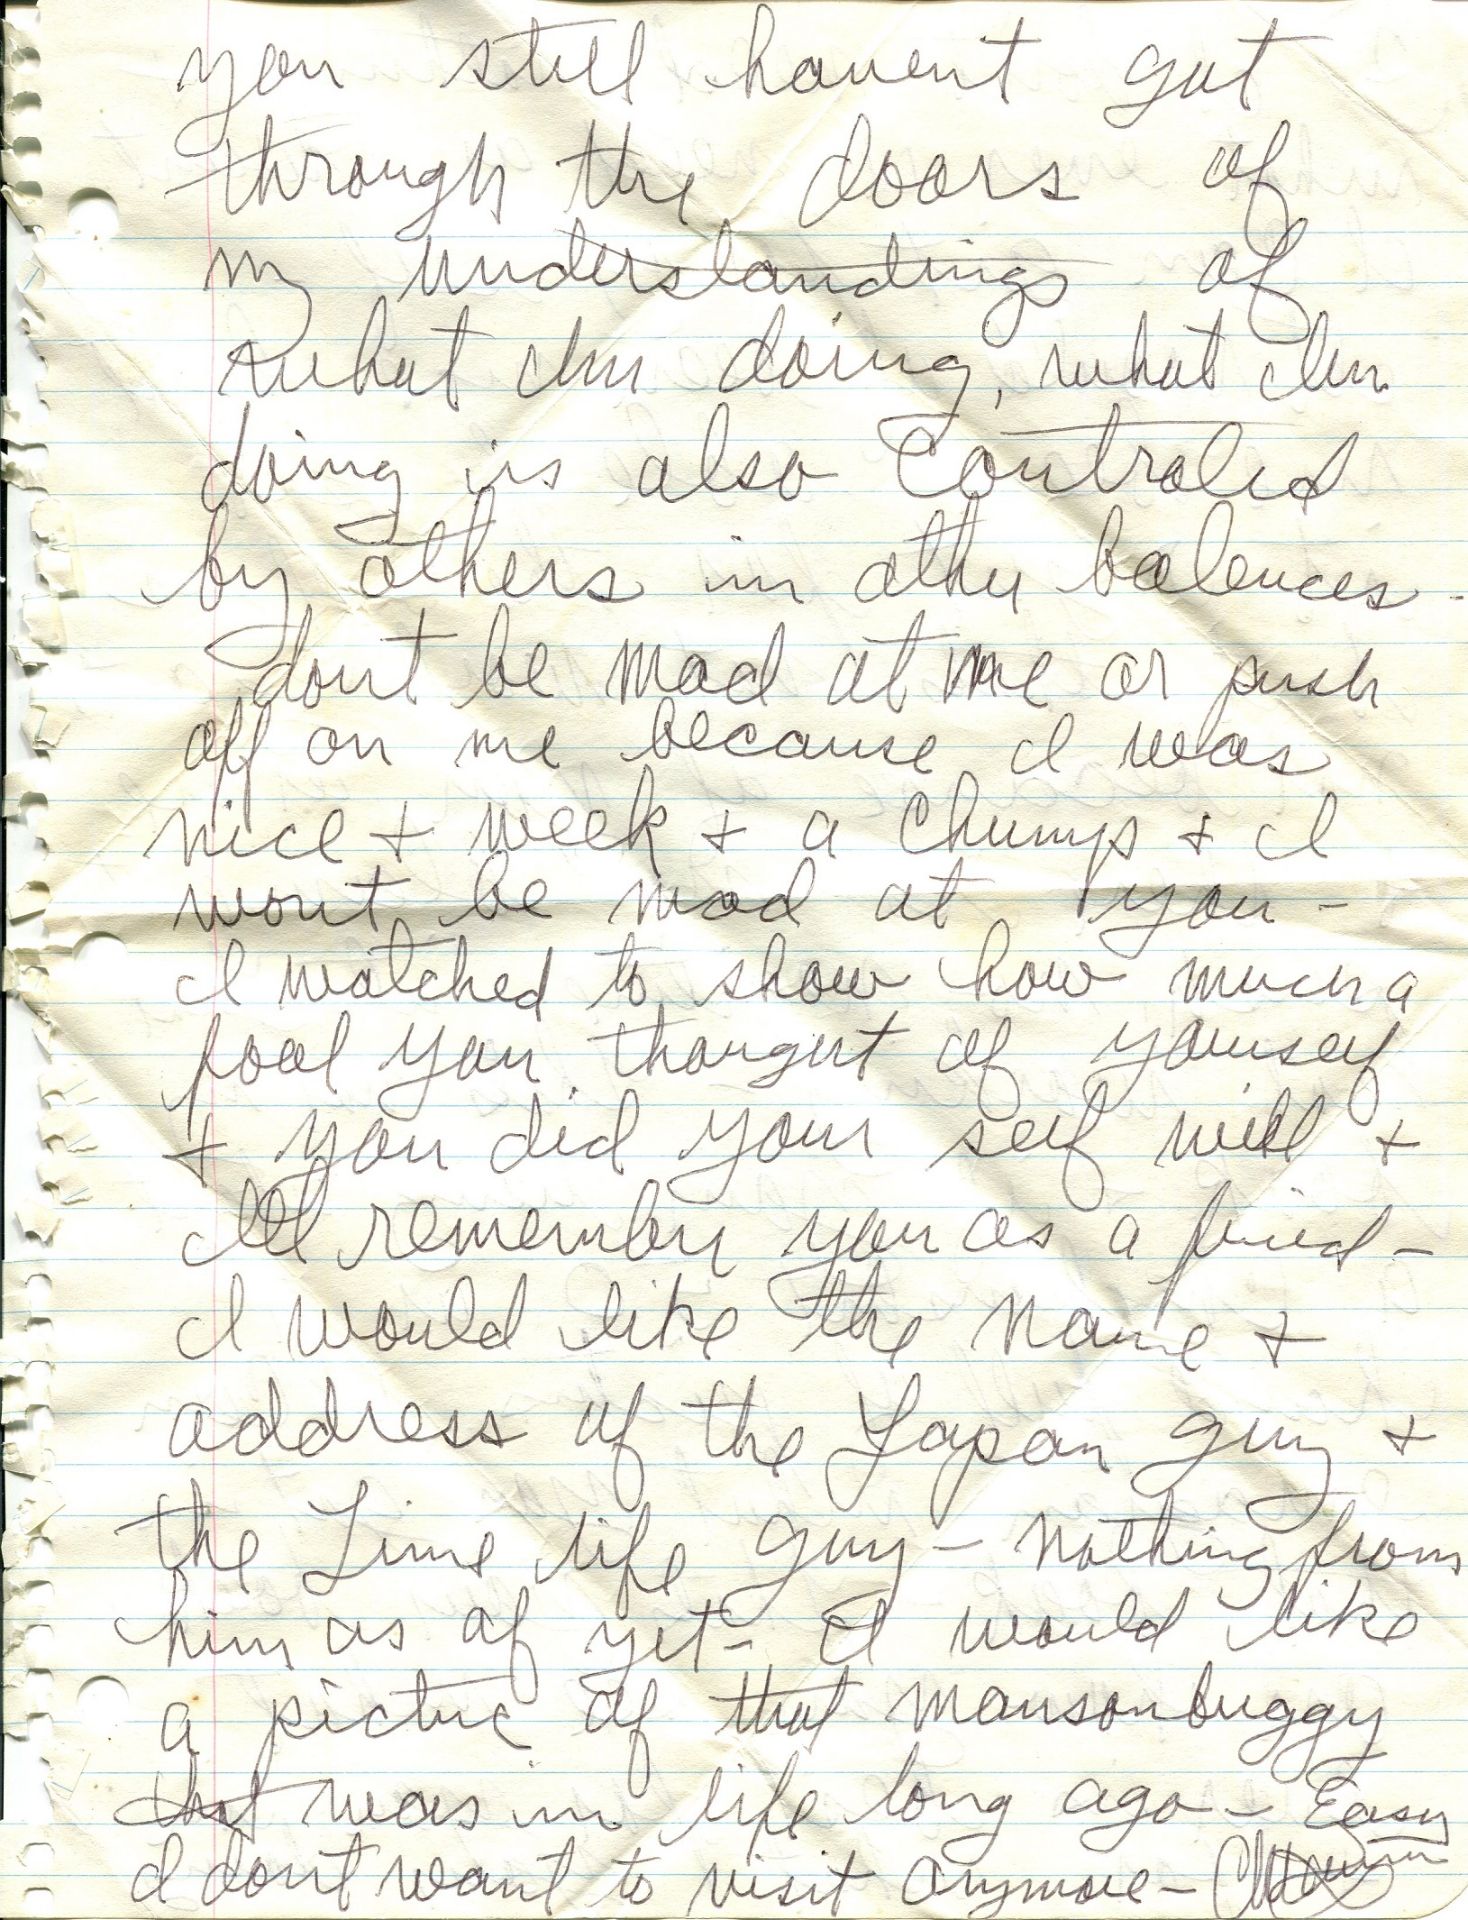 you still havent got
through the doors of
my understandings of
what Im doing, what Im
doing is also Controled
by others in other balences -
dont be mad at me or push
off on me because I was
nice + week + a Chump + I
wont be mad at you -
I watched to show how much a
fool you thought of yourself
+ you did your self will +
Ill remember you as a friend -
I would like the name +
address of the Japan guy +
the Time life guy - nothing from
him as of yet - I would like
a picture of that mansonbuggy
that was in life long ago - Easy
I dont want to visit anymore -